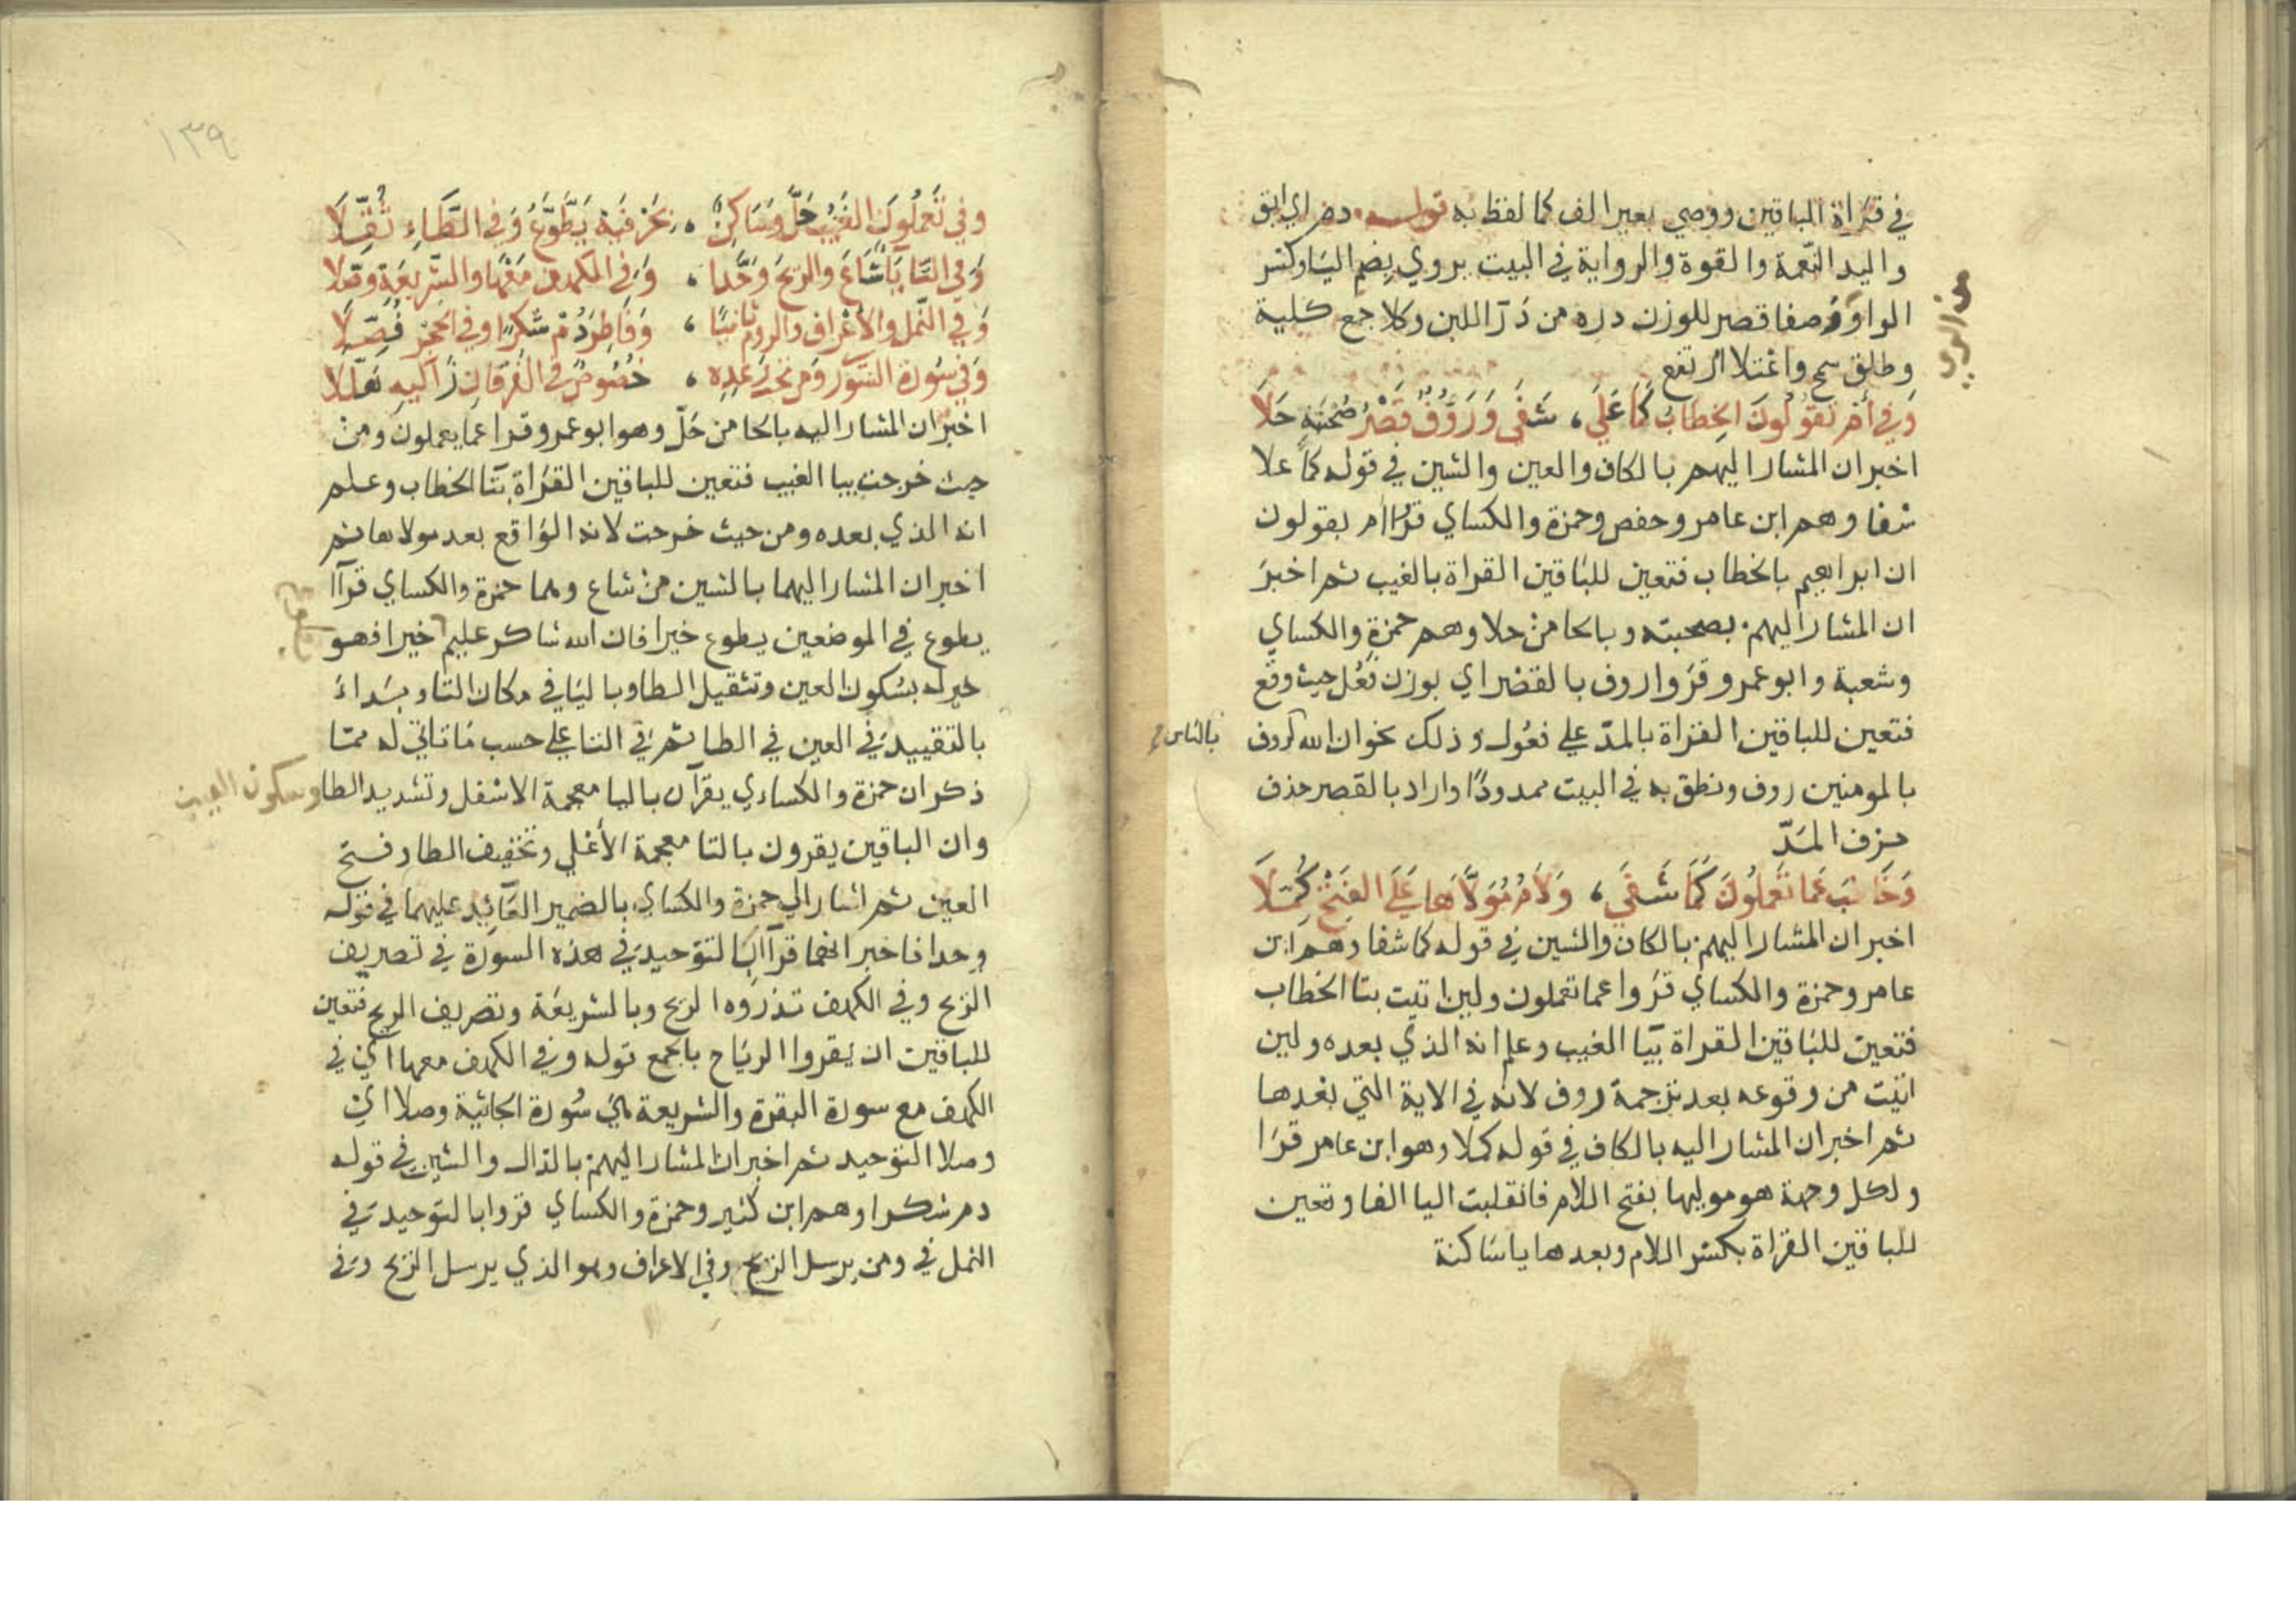 في قراة الباقين ووصي بغير الف كما لفظ به قوله دم اي ابق
واليد النعمة والقوة والرواية في البيت يروي بضم اليا وكسر
الواو وصفا قصر للوزن دره من در اللبن وكلا جمع كلية
وطلق سمح واعتلا ارتفع
وَفي أم تقُولُونَ الخِطابُ كَمَا عَلَى، شَفَى وَرَؤُفٌ قَصْرُ صُحْبَتِهِ حَلَا
اخبر ان المشار اليهم بالكاف والعين والشين في قوله كما علا
شفا وهم ابن عامر وحفص وحمزة والكساي قراا ام يقولون
ان ابراهيم بالخطاب فتعين للباقين القراة بالغيب ثم اخبر
ان المشار اليهم بصحبته وبالحا من حلا وهم حمزة والكساي
وشعبة وابو عمرو قروا روف بالقصر اي بوزن فعُل حيث وقع
فتعين للباقين القراة بالمدّ علي فعُول وذلك نحو ان الله لروف
بالناس
بالمومنين روف ونطق به في البيت ممدودًا واراد بالقصر حذف
حرف المَدّ
وَخَاطَبَ عَما تَعملُونَ كَمَا شَفَى، وَلَامُ مُوَلَّاهَا عَلَى الفَتْحِ كُمِّلَا
اخبر ان المشار اليهم بالكاف والشين في قوله كما شفا وهم ابن
عامر وحمزة والكساي قروا عما تعملون ولين اتيت بتا الخطاب
فتعين للباقين القراة بيا الغيب وعلم انه الذي بعده ولين
اتيت من وقوعه بعد ترجمة روف لانه في الاية التي بعدها
ثم اخبر ان المشار اليه بالكاف في قوله كملا وهو ابن عامر قرا
ولكل وجهة هو موليها بفتح اللام فانقلبت اليا الفا وتعين
للباقين القراة بكسر اللام وبعدها يا ساكنة
١٣٩
وفي تَعمَلُونَ الغَيْبُ حَلَّ وَسَاكِنٌ، بحَرْفَيْهِ يَطَّوَّعْ وَفي الطَّاءِ ثُقِّلَا
وَفي التَّا يَاءٌ شَاعَ والريحَ وَحَّدا، وَفي الكهف مَعْهَا والشّريعَةِ وصّلا
وَفي النّمل والأعْراف والروم ثانيًا، وَفَاطِرَ دُمْ شكرًا وفي الحجر فُصِّلَا
وَفي سُورة الشورَى ومن تحتِ رَعْدِهِ، خصُوصٌ وفي الفُرْقانِ زَاكيهِ هَلَّلا
اخبر ان المشار اليه بالحا من حَلّ وهو ابو عمرو قرا عما يعملون ومن
حيث خرجت بيا الغيب فتعين للباقين القراة بتا الخطاب وعلم
انه الذي بعده ومن حيث خرجت لانه الواقع بعد مولاها ثم
اخبر ان المشار اليهما بالشين من شاع وهما حمزة والكساي قراا
يطوع في الموضعين يطوع خيرا فان الله شاكر عليم خيرا فهو
خير له بسُكون العين وتثقيل الطا وباليا في مكان التا وبداء
بالتقييد في العين في الطا ثم في التا علي حسب ما تاتي له مما
ذكر ان حمزة والكساءي يقرآن باليا معجمة الاسفل وتشديد الطا وسكون العين
وان الباقين يقرون بالتا معجمة الأعلي وتخفيف الطا وفتح
العين ثم اشار الي حمزة والكساي بالضمير العائد عليهما في قوله
وحدا فاخبر انهما قراا بالتوحيد في هذه السورة في تصريف
الريح وفي الكهف تذروه الريح وبالشريعة وتصريف الريح فتعين
للباقين ان يقروا الرياح بالجمع قوله وفي الكهف معها اي في
الكهف مع سورة البقرة والشريعة هي سُورة الجاثية وصلا اي
وصلا التوحيد ثم اخبر ان المشار اليهم بالدال والشين في قوله
دم شكرا وهم ابن كثير وحمزة والكساي قروا بالتوحيد في
النمل في ومن يرسل الريح وفي الاعراف وهو الذي يرسل الريح وفي